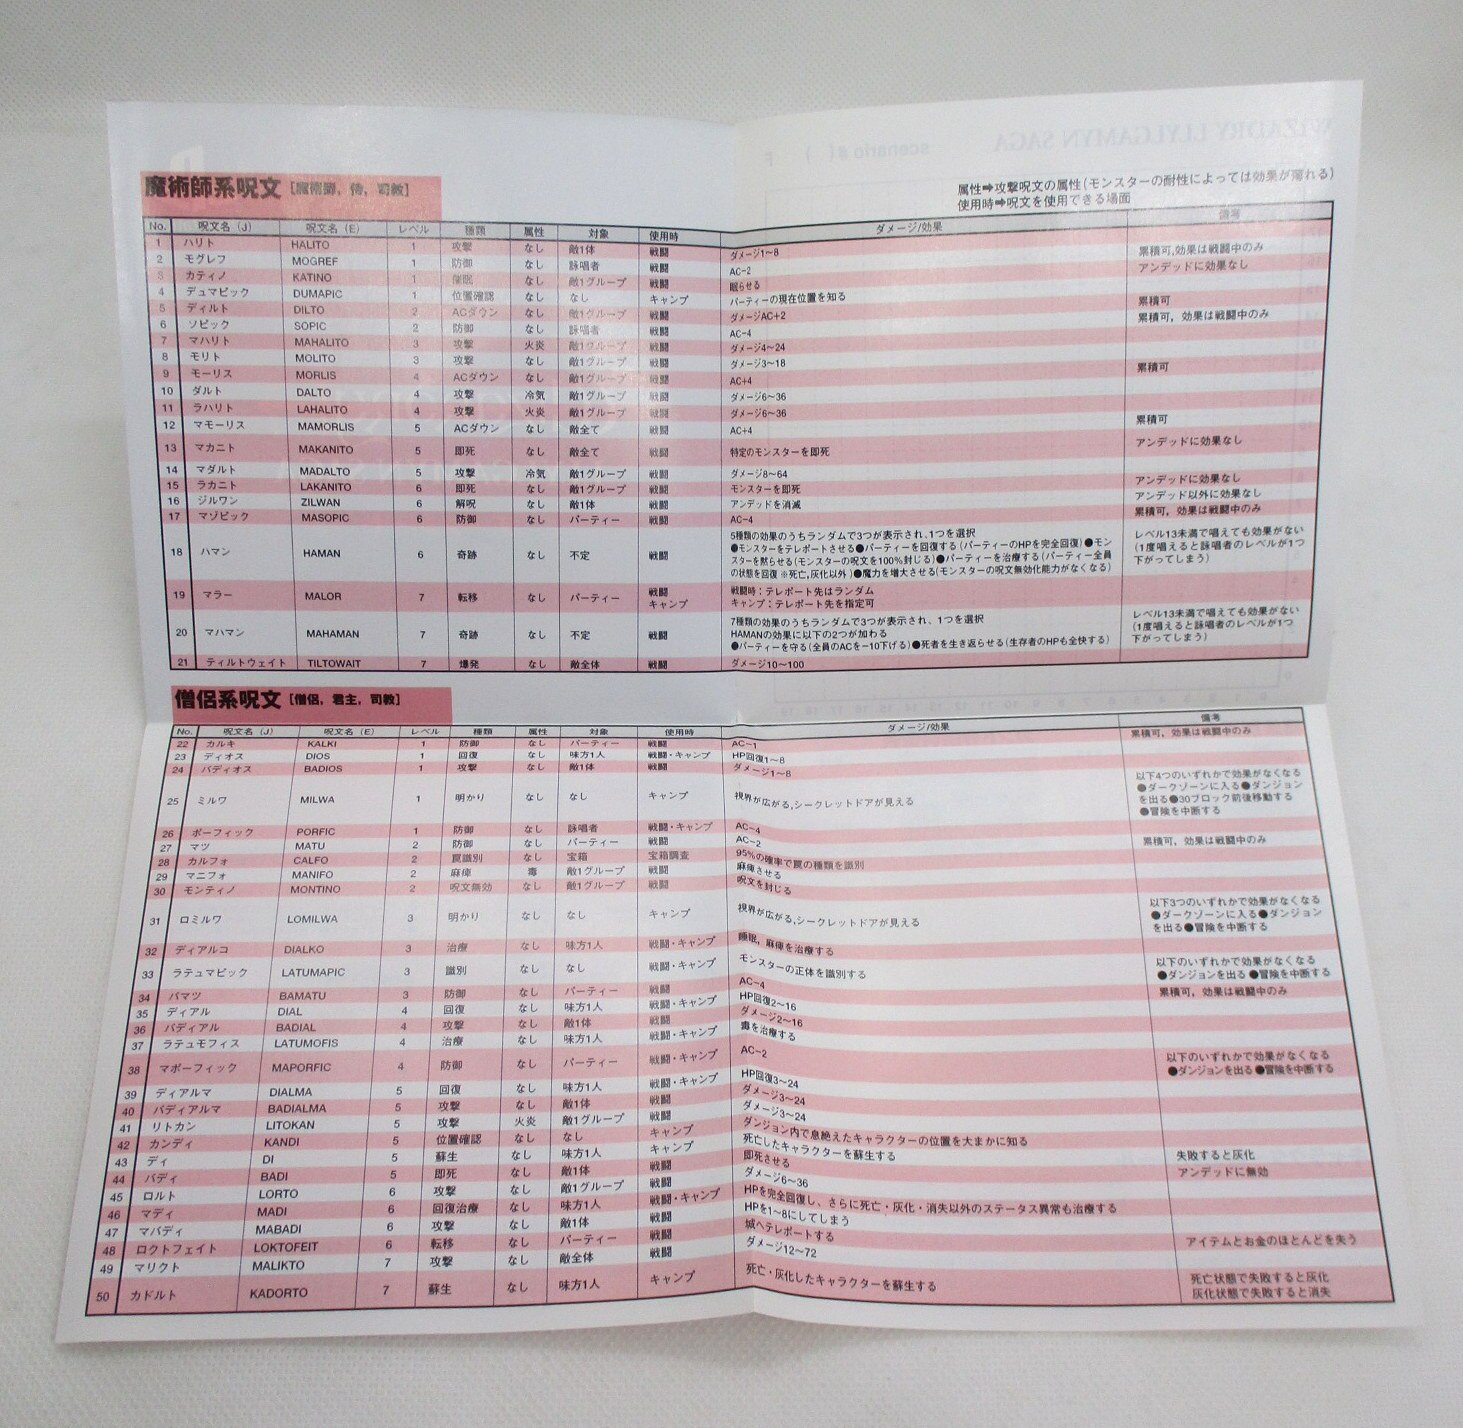 属性➡攻撃呪文の属性(モンスターの耐性によっては効果が薄れる)
使用時➡呪文を使用できる場面
魔術師系呪文 [魔術師, 侍, 司教]
No. 呪文名(J) 呪文名(E) レベル 種類 属性 対象 使用時 ダメージ/効果 備考
1 ハリト HALITO 1 攻撃 なし 敵1体 戦闘 ダメージ1〜8
2 モグレフ MOGREF 1 防御 なし 詠唱者 戦闘 AC-2 累積可,効果は戦闘中のみ
3 カティノ KATINO 1 催眠 なし 敵1グループ 戦闘 眠らせる アンデッドに効果なし
4 デュマピック DUMAPIC 1 位置確認 なし なし キャンプ パーティーの現在位置を知る
5 ディルト DILTO 2 ACダウン なし 敵1グループ 戦闘 ダメージAC+2 累積可
6 ソピック SOPIC 2 防御 なし 詠唱者 戦闘 AC-4 累積可, 効果は戦闘中のみ
7 マハリト MAHALITO 3 攻撃 火炎 敵1グループ 戦闘 ダメージ4〜24
8 モリト MOLITO 3 攻撃 なし 敵1グループ 戦闘 ダメージ3〜18
9 モーリス MORLIS 4 ACダウン なし 敵1グループ 戦闘 AC+4 累積可
10 ダルト DALTO 4 攻撃 冷気 敵1グループ 戦闘 ダメージ6〜36
11 ラハリト LAHALITO 4 攻撃 火炎 敵1グループ 戦闘 ダメージ6〜36
12 マモーリス MAMORLIS 5 ACダウン なし 敵全て 戦闘 AC+4 累積可
13 マカニト MAKANITO 5 即死 なし 敵全て 戦闘 特定のモンスターを即死 アンデッドに効果なし
14 マダルト MADALTO 5 攻撃 冷気 敵1グループ 戦闘 ダメージ8〜64
15 ラカニト LAKANITO 6 即死 なし 敵1グループ 戦闘 モンスターを即死 アンデッドに効果なし
16 ジルワン ZILWAN 6 解呪 なし 敵1体 戦闘 アンデッドを消滅 アンデッド以外に効果なし
17 マゾピック MASOPIC 6 防御 なし パーティー 戦闘 AC-4 累積可, 効果は戦闘中のみ
18 ハマン HAMAN 6 奇跡 なし 不定 戦闘 5種類の効果のうちランダムで3つが表示され、1つを選択
●モンスターをテレポートさせる●パーティーを回復する(パーティーのHPを完全回復)●モン
スターを黙らせる(モンスターの呪文を100%封じる)●パーティーを治療する(パーティー全員
の状態を回復 ※死亡,灰化以外)●魔力を増大させる(モンスターの呪文無効化能力がなくなる)
レベル13未満で唱えても効果がない
(1度唱えると詠唱者のレベルが1つ
下がってしまう)
19 マラー MALOR 7 転移 なし パーティー 戦闘
キャンプ
戦闘時:テレポート先はランダム
キャンプ:テレポート先を指定可
20 マハマン MAHAMAN 7 奇跡 なし 不定 戦闘 7種類の効果のうちランダムで3つが表示され、1つを選択
HAMANの効果に以下の2つが加わる
●パーティーを守る(全員のACを-10下げる)●死者を生き返らせる(生存者のHPも全快する)
レベル13未満で唱えても効果がない
(1度唱えると詠唱者のレベルが1つ
下がってしまう)
21 ティルトウェイト TILTOWAIT 7 爆発 なし 敵全体 戦闘 ダメージ10〜100
僧侶系呪文 [僧侶, 君主, 司教]
No. 呪文名(J) 呪文名(E) レベル 種類 属性 対象 使用時 ダメージ/効果 備考
22 カルキ KALKI 1 防御 なし パーティー 戦闘 AC-1 累積可, 効果は戦闘中のみ
23 ディオス DIOS 1 回復 なし 味方1人 戦闘・キャンプ HP回復1〜8
24 バディオス BADIOS 1 攻撃 なし 敵1体 戦闘 ダメージ1〜8
25 ミルワ MILWA 1 明かり なし なし キャンプ 視界が広がる,シークレットドアが見える
以下4つのいずれかで効果がなくなる
●ダークゾーンに入る●ダンジョン
を出る●30ブロック前後移動する
●冒険を中断する
26 ポーフィック PORFIC 1 防御 なし 詠唱者 戦闘・キャンプ AC-4
27 マツ MATU 2 防御 なし パーティー 戦闘 AC-2 累積可, 効果は戦闘中のみ
28 カルフォ CALFO 2 罠識別 なし 宝箱 宝箱調査 95%の確率で罠の種類を識別
29 マニフォ MANIFO 2 麻痺 毒 敵1グループ 戦闘 麻痺させる
30 モンティノ MONTINO 2 呪文無効 なし 敵1グループ 戦闘 呪文を封じる
31 ロミルワ LOMILWA 3 明かり なし なし キャンプ 視界が広がる,シークレットドアが見える
以下3つのいずれかで効果がなくなる
●ダークゾーンに入る●ダンジョン
を出る●冒険を中断する
32 ディアルコ DIALKO 3 治療 なし 味方1人 戦闘・キャンプ 睡眠, 麻痺を治療する
33 ラテュマピック LATUMAPIC 3 識別 なし なし 戦闘・キャンプ モンスターの正体を識別する
以下のいずれかで効果がなくなる
●ダンジョンを出る ●冒険を中断する
34 バマツ BAMATU 3 防御 なし パーティー 戦闘 AC-4 累積可, 効果は戦闘中のみ
35 ディアル DIAL 4 回復 なし 味方1人 戦闘・キャンプ HP回復2〜16
36 バディアル BADIAL 4 攻撃 なし 敵1体 戦闘 ダメージ2〜16
37 ラテュモフィス LATUMOFIS 4 治療 なし 味方1人 戦闘・キャンプ 毒を治療する
38 マポーフィック MAPORFIC 4 防御 なし パーティー 戦闘・キャンプ AC-2
以下のいずれかで効果がなくなる
●ダンジョンを出る●冒険を中断する
39 ディアルマ DIALMA 5 回復 なし 味方1人 戦闘・キャンプ HP回復3〜24
40 バディアルマ BADIALMA 5 攻撃 なし 敵1体 戦闘 ダメージ3〜24
41 リトカン LITOKAN 5 攻撃 火炎 敵1グループ 戦闘 ダメージ3〜24
42 カンディ KANDI 5 位置確認 なし なし キャンプ ダンジョン内で息絶えたキャラクターの位置を大まかに知る
43 ディ DI 5 蘇生 なし 味方1人 キャンプ 死亡したキャラクターを蘇生する 失敗すると灰化
44 バディ BADI 5 即死 なし 敵1体 戦闘 即死させる アンデッドに無効
45 ロルト LORTO 6 攻撃 なし 敵1グループ 戦闘 ダメージ6〜36
46 マディ MADI 6 回復治療 なし 味方1人 戦闘・キャンプ HPを完全回復し、さらに死亡・灰化・消失以外のステータス異常も治療する
47 マバディ MABADI 6 攻撃 なし 敵1体 戦闘 HPを1〜8にしてしまう
48 ロクトフェイト LOKTOFEIT 6 転移 なし パーティー 戦闘 城へテレポートする アイテムとお金のほとんどを失う
49 マリクト MALIKTO 7 攻撃 なし 敵全体 戦闘 ダメージ12〜72
50 カドルト KADORTO 7 蘇生 なし 味方1人 キャンプ 死亡・灰化したキャラクターを蘇生する
死亡状態で失敗すると灰化
灰化状態で失敗すると消失